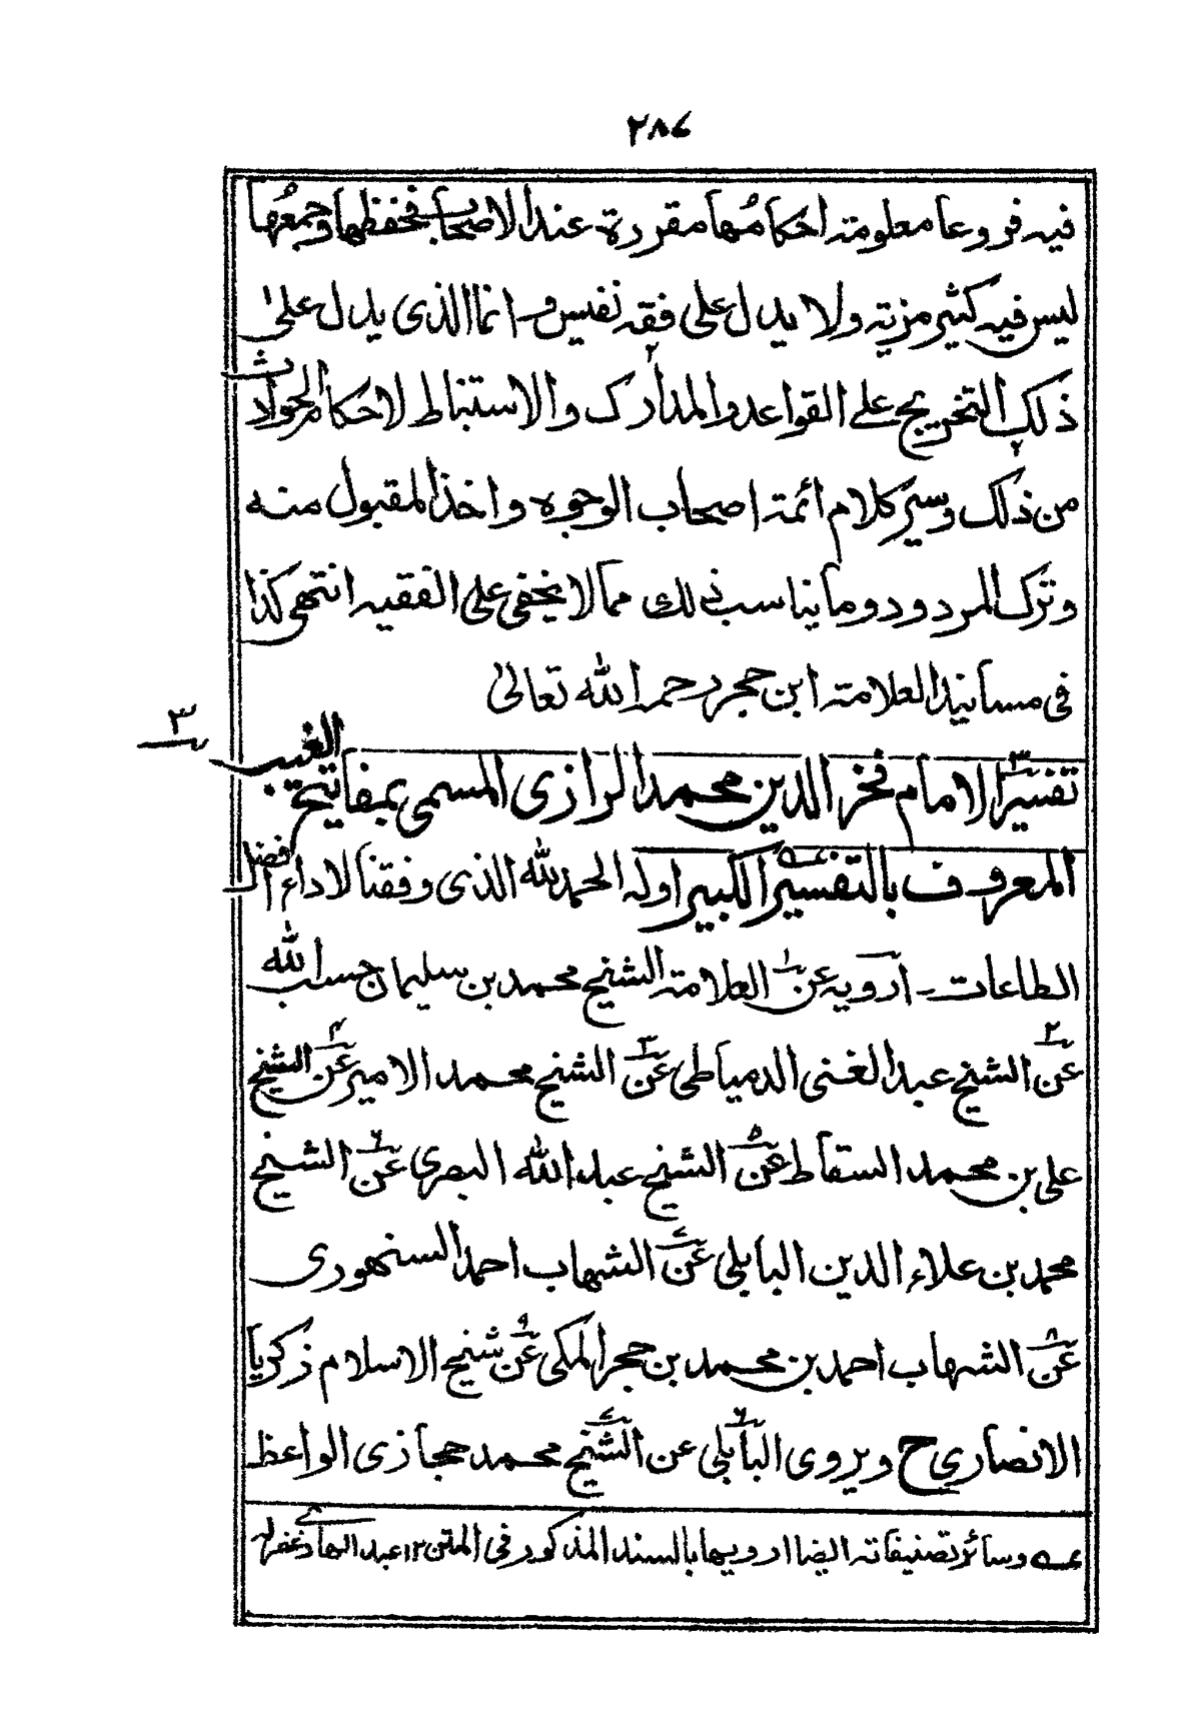 ٢٨٦
فيه فروعا معلومة احكامُها مقررة عند الاصحاب فحفظها وجمعُها
ليس فيه كثير مزية ولا يدل على فقه نفيس وانما الذى يدل على
ذلك التخريج على القواعد والمدارك والاستنباط لاحكام الحوادث
من ذلك وسير كلام ائمة اصحاب الوجوه واخذ المقبول منه
وترك المردود وما يناسب ذلك مما لا يخفى على الفقيه انتهى كذا
فى مسانيد العلامة ابن حجر رحمه الله تعالى
٣
تفسير الامام فخر الدين محمد الرازى المسمى بمفاتيح الغيب
المعروف بالتفسير الكبير اوله الحمد لله الذى وفقنا لاداء افضل
الطاعات ـ ارويه عن العلامة الشيخ محمد بن سليمان حسب الله
عن الشيخ عبد الغنى الدمياطى عن الشيخ محمد الامير عن الشيخ
على بن محمد السقاط عن الشيخ عبد الله البصرى عن الشيخ
محمد بن علاء الدين البابلى عن الشهاب احمد السنهورى
عن الشهاب احمد بن محمد بن حجر المكى عن شيخ الاسلام زكريا
الانصارى ح ويروى البابلى عن الشيخ محمد حجازى الواعظ
عه وسائر تصنيفاته ايضا ارويها بالسند المذكور فى المتن ١٢ عبد الهادى غفر له